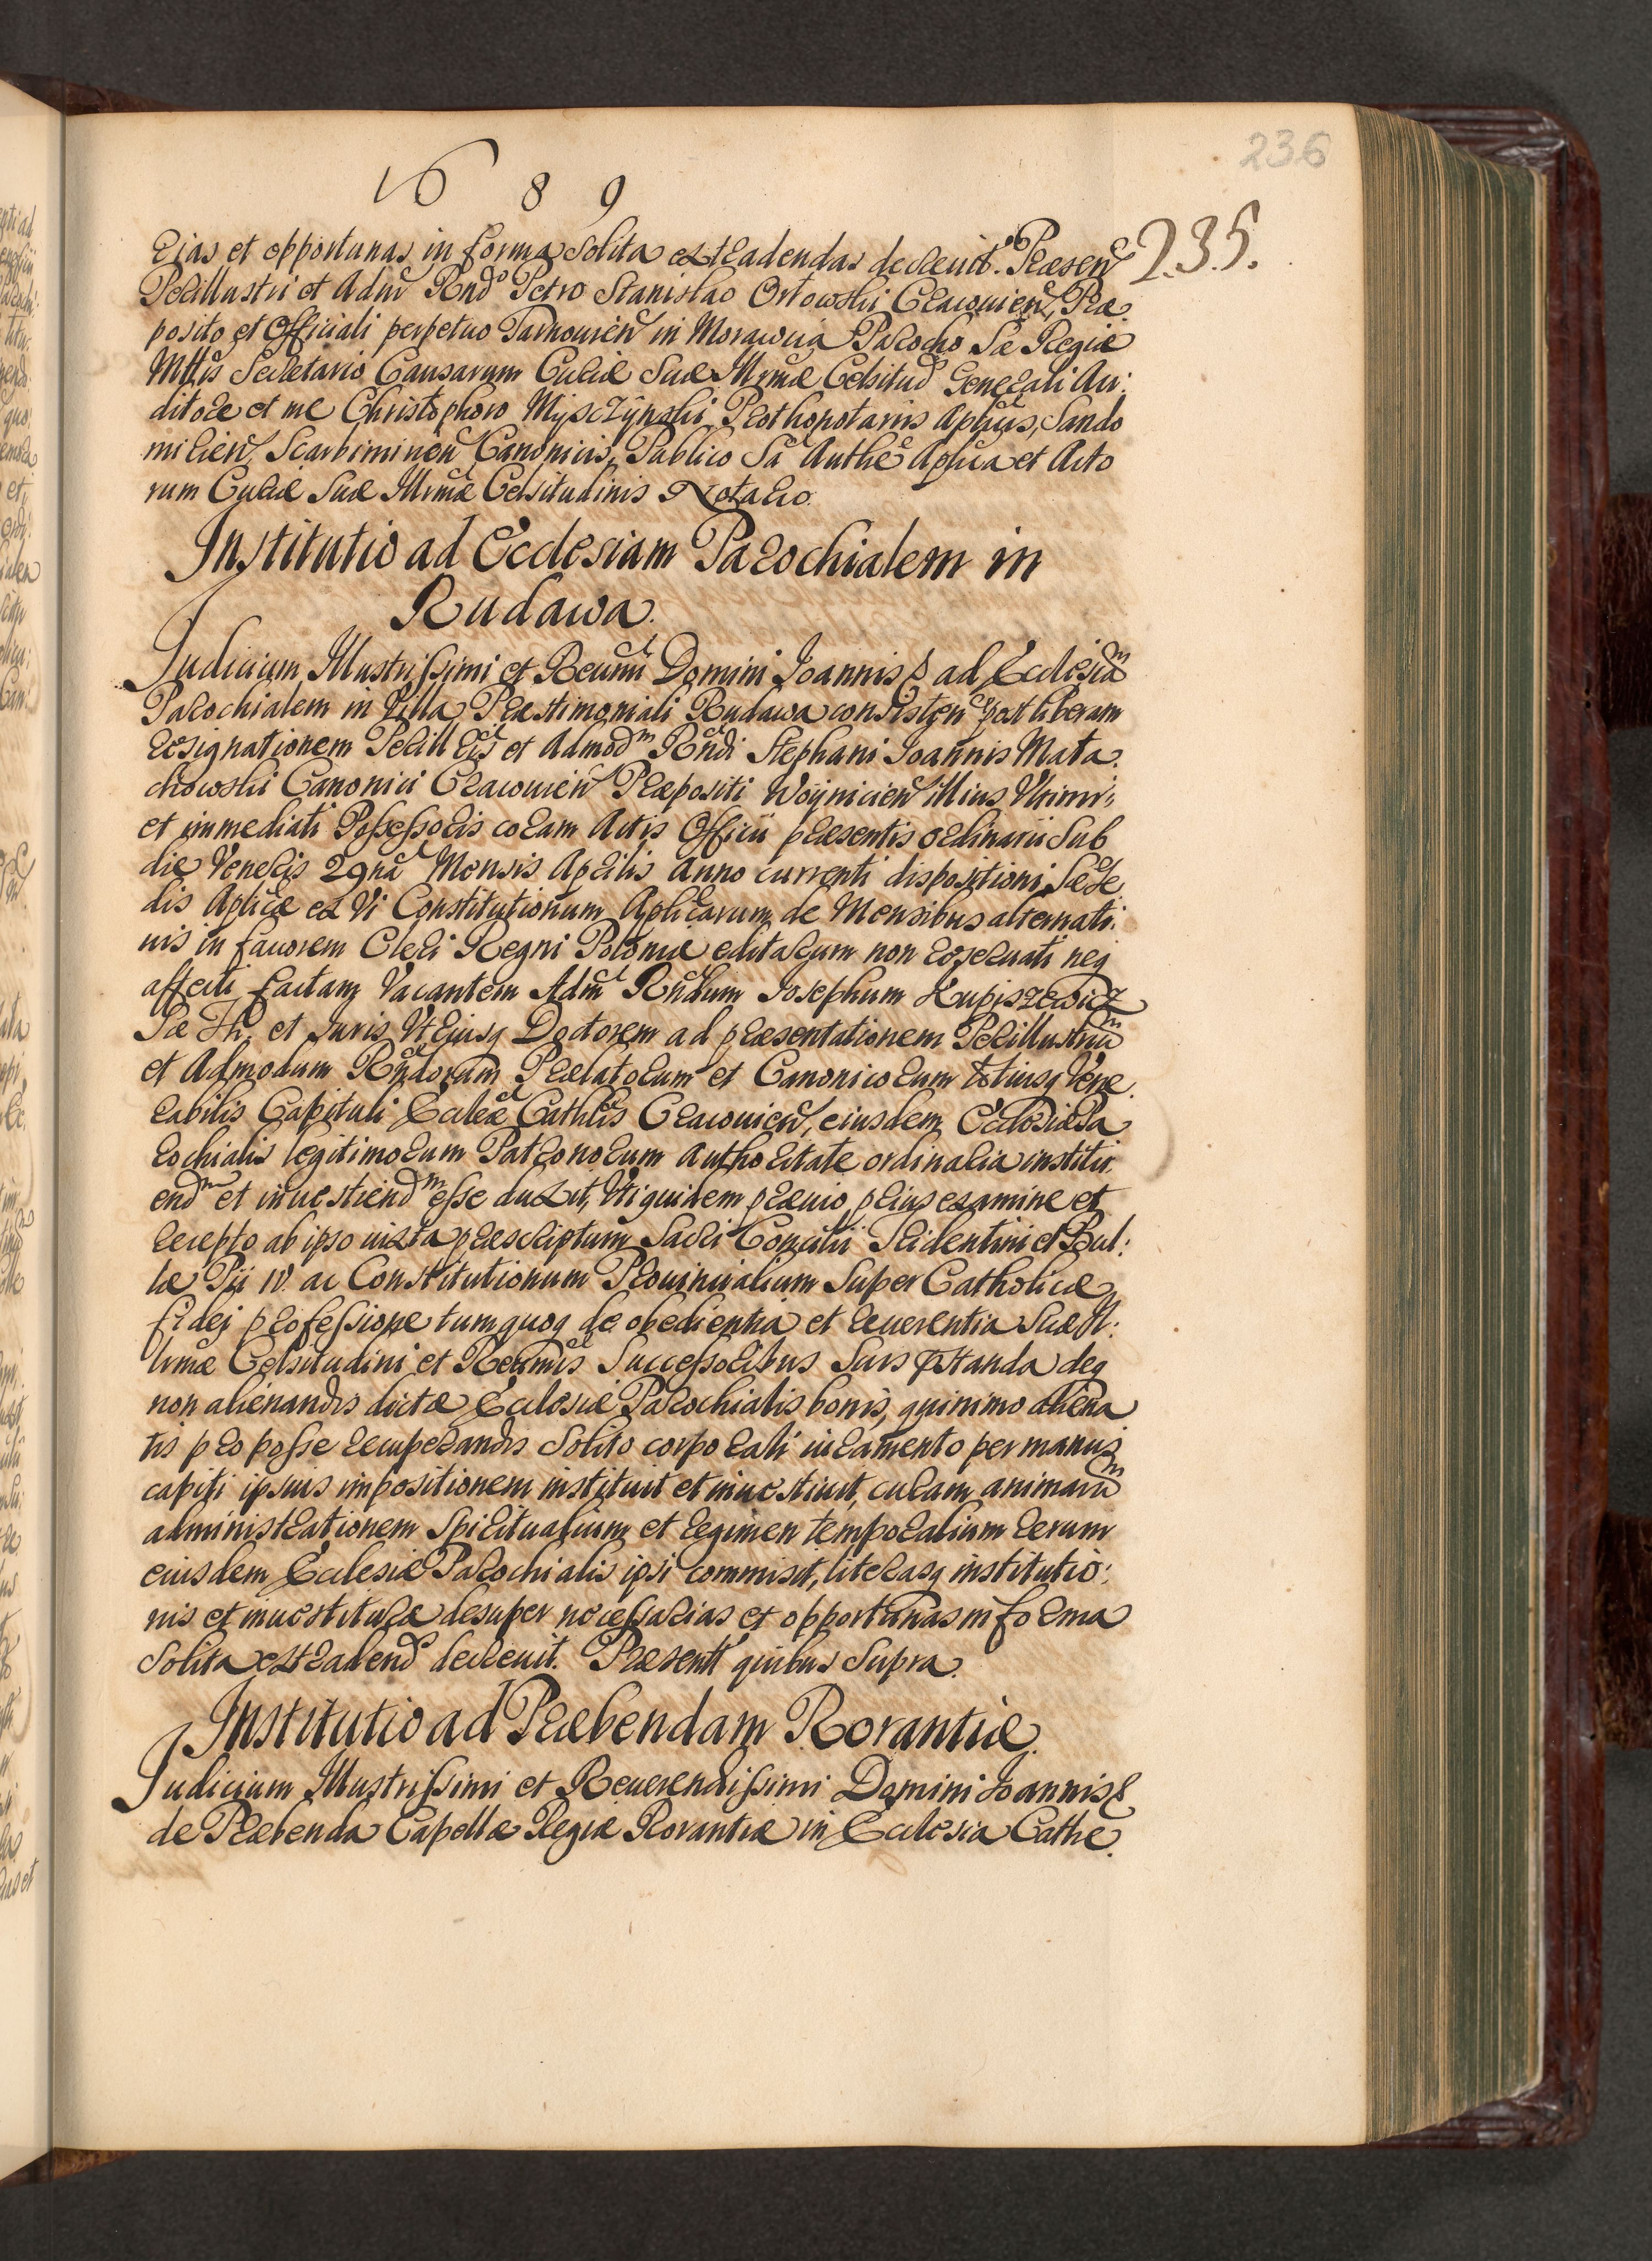 236
1689
235.
rias et opportunas in forma solita extradendas decrevit. Præsen
Perillustri et Admr Rndo Petro Stanislao Orłowski Cracouien, Præ
posito et Officiali perpetuo Tarnouien in Morawica Parocho Sæ Regiæ
Mttis Secretario Causarum Curiæ Suæ Illrmæ Celsitud Generali Au:
ditore et me Christophoro Mijsczÿnski Prothonotariis Aplicis, Sando
mirien, Scarbimirien Canonicis, Publico Sa Authe Aplica et Acto
rum Curiæ Suæ Illrmæ Celsitudinis Notario.
Institutio ad Ecclesiam Parochialem in
Rudawa.
Judicium Illustrissimi et Reumi Domini Joannis & ad Ecclesiam
Parochialem in Villa Præstimoniali Rudawa consisten post liberam
resignationem Perillris et Admodm Rndi Stephani Joannis Mała.
chowski Canonici Cracouien Præpositi Woÿnicien illius Vltimi,
et immediati Possessoris coram Actis Officii præsentis ordinarii sub
die Veneris 29na Mensis Aprilis anno currenti dispositioni Sæ Se
dis Aplicæ ex Vi Constitutionum Aplicarum de Mensibus alternati:
uis in fauorem Cleri Regni Poloniæ editarum non reseruati neq
affecti factam Vacantem Adm Rndum Josephum Kupiszewicz
Sæ Th. et Juris Vtriusq Doctorem ad præsentationem Perillustrium
et Admodum Rndorum Prælatorum et Canonicorum totiusq Vene.
rabilis Capituli Eccleæ Cathlis Cracouien, eiusdem Ecclesiæ Pa
rochialis legitimorum Patronorum authoritate ordinaria institu.
endm et inuestiendm esse duxit, Vti quidem præuio prius examine et
recepto ab ipso iuxta præscriptum Sacri Concilii Tridentini et Bul:
læ Pii IV. ac Constitutionum Prouincialium super Catholicæ
fidei professione tumquoq de obedientia et reuerentia Suæ Il:
lrmæ Celsitudini et Reuermis Successoribus Suis præstanda deq
non alienandis dictæ Ecclesiæ Parochialis bonis, quinimo aliena
tis pro posse recuperandis solito corporali iuramento per manus
capiti ipsius impositionem instituit et inuestiuit, curam animarum
administrationem Spiritualium et regimen temporalium rerum
eiusdem Ecclesiæ Parochialis ipsi commisit, literasq institutio:
nis et inuestituræ desuper necessarias et opportunas in forma
solita extradend decreuit. Præsentt quibus supra.
Institutio ad Præbendam Rorantiæ.
Judicium Illustrissimi et Reuerendissimi Domini Joannis &
de Præbenda Capellæ Regiæ Rorantiæ in Ecclesia Cathe.